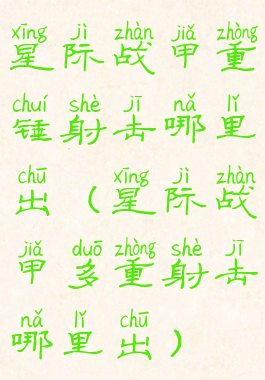 xīng jì zhàn jiǎ zhòng
星际战甲重
chuí shè jī nǎ lǐ
锤射击哪里
chū xīng jì zhàn
出（星际战
jiǎ duō zhòng shè jī
甲多重射击
nǎ lǐ chū
哪里出）